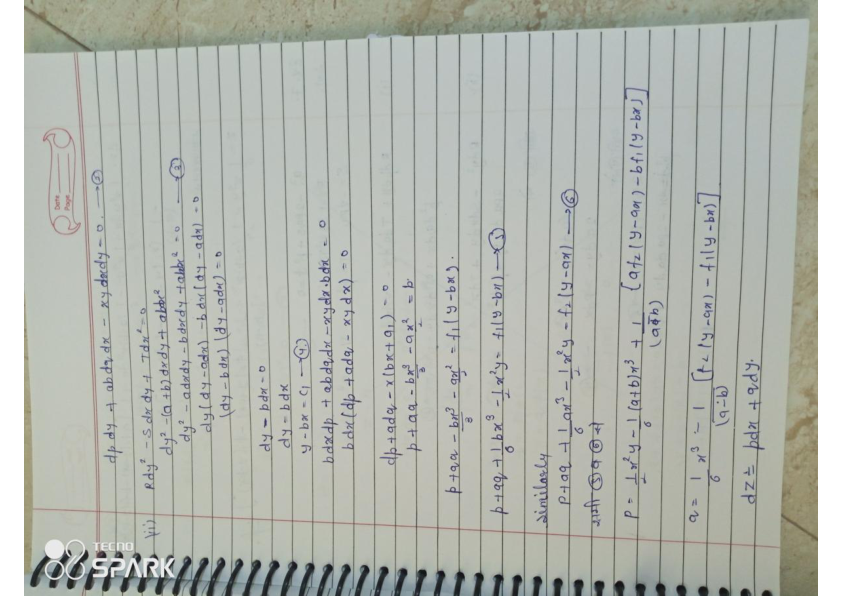 Date
Page
dpdy + abdqdx - xydxdy = 0. → ②
(ii) Rdy² - Sdxdy + Tdx² = 0
dy² - (a+b)dxdy + abdx²
dy² - adxdy - bdxdy + abdx² = 0 → ③
dy(dy-adx) - bdx(dy-adx) = 0
(dy-bdx) (dy-adx) = 0
dy - bdx = 0
dy = bdx
y - bx = c₁ → ④
bdxdp + abdqdx - xydx·bdx = 0
bdx(dp + adq - xydx) = 0
dp + adq - x(bx + a₁) = 0
p + aq - bx³/3 - ax²/2 = b
p + aq - bx³/3 - ay²/2 = f₁(y-bx).
p + aq + 1/6 bx³ - 1/2 x²y = f₁(y-bx) → ⑤
Similarly
p + aq + 1/6 ax³ - 1/2 x²y = f₂(y-ax) → ⑥
समी ⑤ व ⑥ से
p = 1/2 x²y - 1/6 (a+b)x³ + 1/(a-b) [af₂(y-ax) - bf₁(y-bx)]
q = 1/6 x³ - 1/(a-b) [f₂(y-ax) - f₁(y-bx)]
dz = pdx + qdy.
TECNO
SPARK